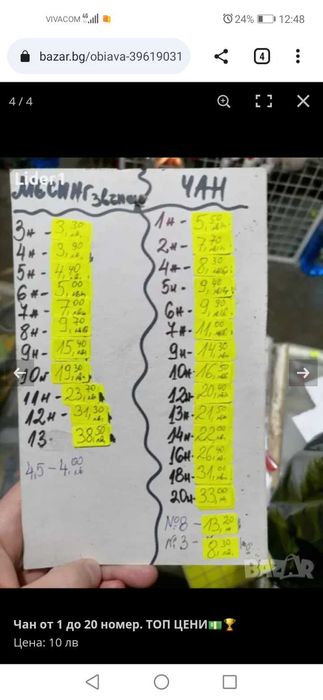 VIVACOM 4G 24% 12:48
bazar.bg/obiava-39619031 4
4 / 4
Lider1
МЕСИНГ звънец
3н - 3,30 лв.
4н - 3,90 лв.
5н - 4,40 лв.
6н - 5,00 лв.
7н - 7,00 лв.
8н - 9,70 лв.
9н - 15,40 лв.
10н 19,30 лв.
11н - 23,70 лв.
12н - 31,30 лв.
13 - 38,50 лв.
4,5 - 4,00 лв.
ЧАН
1н - 5,50 лв.
2н - 7,70 лв.
4н - 8,30 лв.
5н - 9,40 лв.
6н - 9,90 лв.
7н - 11,00 лв.
9н - 14,30 лв.
10н - 16,50 лв.
12н - 20,40 лв.
13н - 21,50 лв.
14н - 22,00 лв.
16н - 26,40 лв.
18н - 31,00 лв.
20н - 33,00 лв.
№8 - 13,20 лв.
№3 - 8,30 лв.
BAZAR
Чан от 1 до 20 номер. ТОП ЦЕНИ💵🏆
Цена: 10 лв